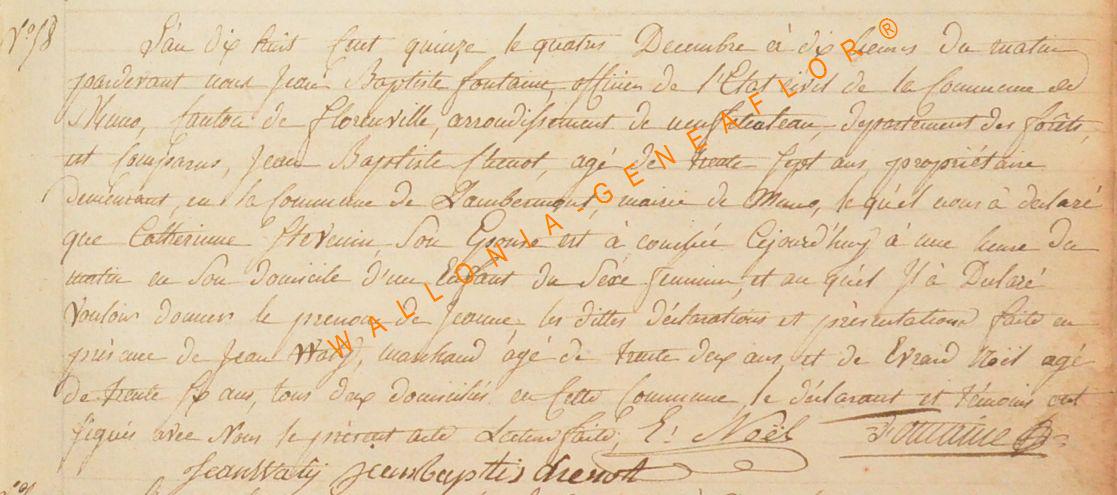 N° 58
L'an dix huit cent quinze le quatre Decembre à dix heures du matin
pardevant nous Jean Baptiste fontaine officier de l'Etat civil de la Commune de
Muno, Canton de florenville, arrondissement de neufchateau, departement des forêts
est comparus, Jean Baptiste Chenot, agé de trente sept ans, propriétaire
demeurant, en la Commune de Lambermont, mairie de Muno, lequel nous à declaré
que Catterinne Stevenin Son Epouse est à couchée Cejourd'huy à une heure du
matin en Son domicile d'un Enfant du Sexe feminin, et au quel J'à Declaré
Vouloir donner le prenom de Jeanne, les dittes déclarations et présentations faite en
présence de Jean Watÿ, marchand agé de trente deux ans, et de Evrard Noël agé
de trente six ans, tous deux domiciliés en Cette Commune, le déclarant et témoins ont
signés avec Nous le présent acte Lecture faite, E: Noël fontaine
Jean Watÿ jean baptis chenot
WALLONIA-GENEAFLOR ®